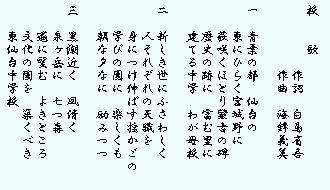 校歌
作詞 白鳥省吾
作曲 海鋒義美
一
青葉の都 仙台の
東にひらく宮城野に
萩咲くほとり蒙古の碑
歴史の跡に 富む里に
建てる中学 わが母校
二
新しき世にふさわしく
人それぞれの天職を
身につけ伸ばす揺かごの
学びの園に 楽しくも
朝な夕なに 励みつつ
三
黒潮近く 風清く
泉ヶ岳に 七つ森
遥に望む よきところ
文化の園を 築くべき
東仙台中学校